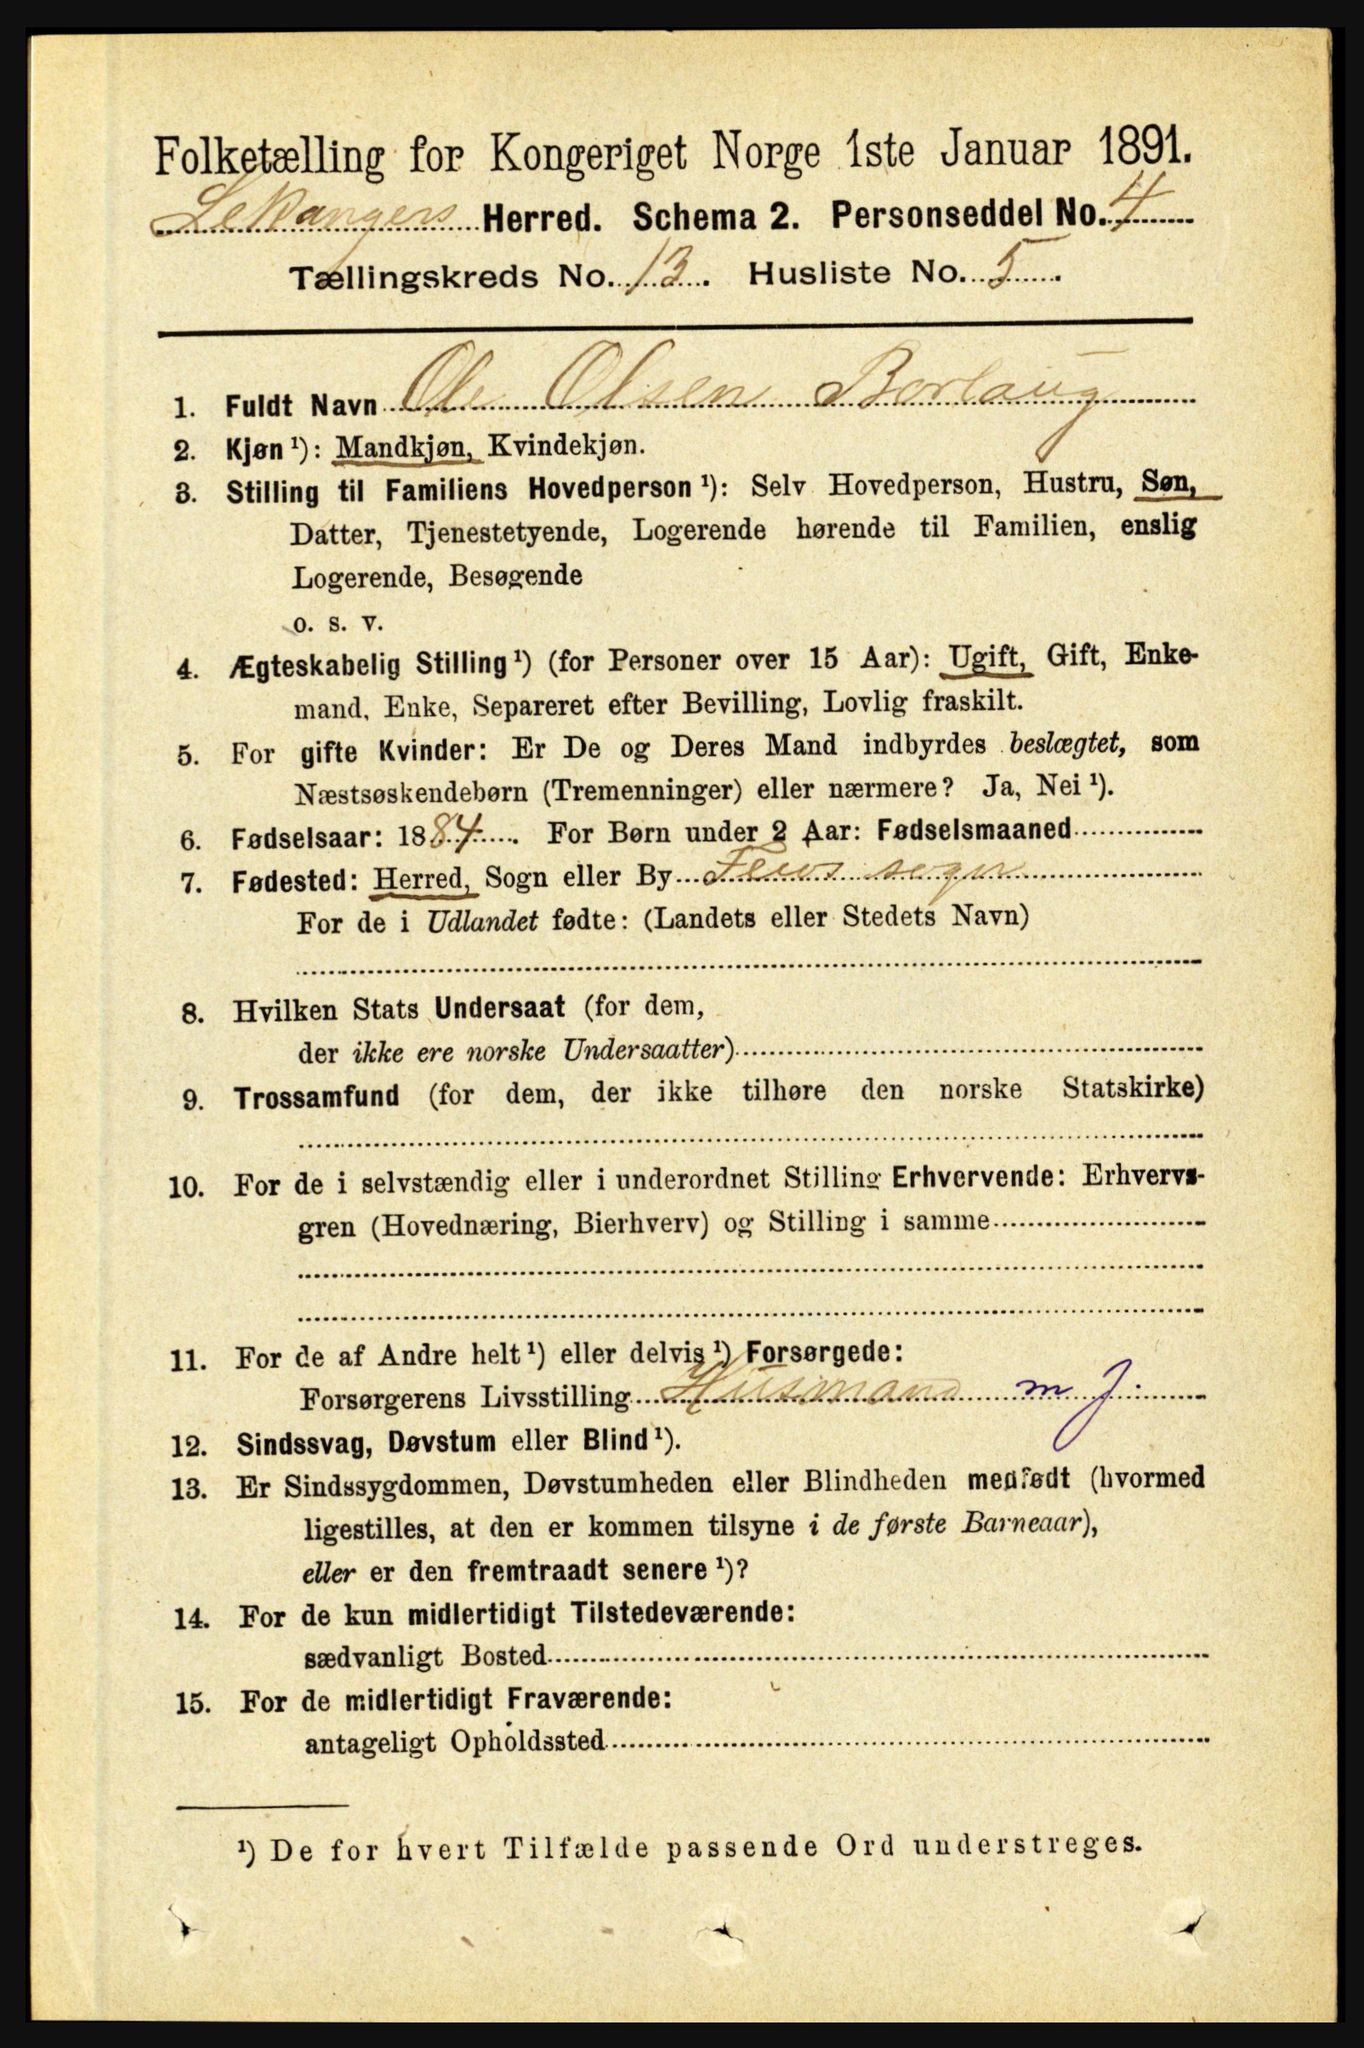 Folketælling for Kongeriget Norge 1ste Januar 1891.
Lekangers Herred. Schema 2. Personseddel No. 4
Tællingskreds No. 13. Husliste No. 5.
1. Fuldt Navn Ole Olsen Borlaug
2. Kjøn ¹): Mandkjøn, Kvindekjøn.
3. Stilling til Familiens Hovedperson ¹): Selv Hovedperson, Hustru, Søn,
Datter, Tjenestetyende, Logerende hørende til Familien, enslig
Logerende, Besøgende
o. s. v.
4. Ægteskabelig Stilling ¹) (for Personer over 15 Aar): Ugift, Gift, Enke-
mand, Enke, Separeret efter Bevilling, Lovlig fraskilt.
5. For gifte Kvinder: Er De og Deres Mand indbyrdes beslægtet, som
Næstsøskendebørn (Tremenninger) eller nærmere? Ja, Nei ¹).
6. Fødselsaar: 1884. For Børn under 2 Aar: Fødselsmaaned
7. Fødested: Herred, Sogn eller By Feios sogn
For de i Udlandet fødte: (Landets eller Stedets Navn)
8. Hvilken Stats Undersaat (for dem,
der ikke ere norske Undersaatter)
9. Trossamfund (for dem, der ikke tilhøre den norske Statskirke)
10. For de i selvstændig eller i underordnet Stilling Erhvervende: Erhvervs-
gren (Hovednæring, Bierhverv) og Stilling i samme
11. For de af Andre helt ¹) eller delvis ¹) Forsørgede:
Forsørgerens Livsstilling Husmand m j.
12. Sindssvag, Døvstum eller Blind ¹).
13. Er Sindssygdommen, Døvstumheden eller Blindheden medfødt (hvormed
ligestilles, at den er kommen tilsyne i de første Barneaar),
eller er den fremtraadt senere ¹)?
14. For de kun midlertidigt Tilstedeværende:
sædvanligt Bosted
15. For de midlertidigt Fraværende:
antageligt Opholdssted
¹) De for hvert Tilfælde passende Ord understreges.